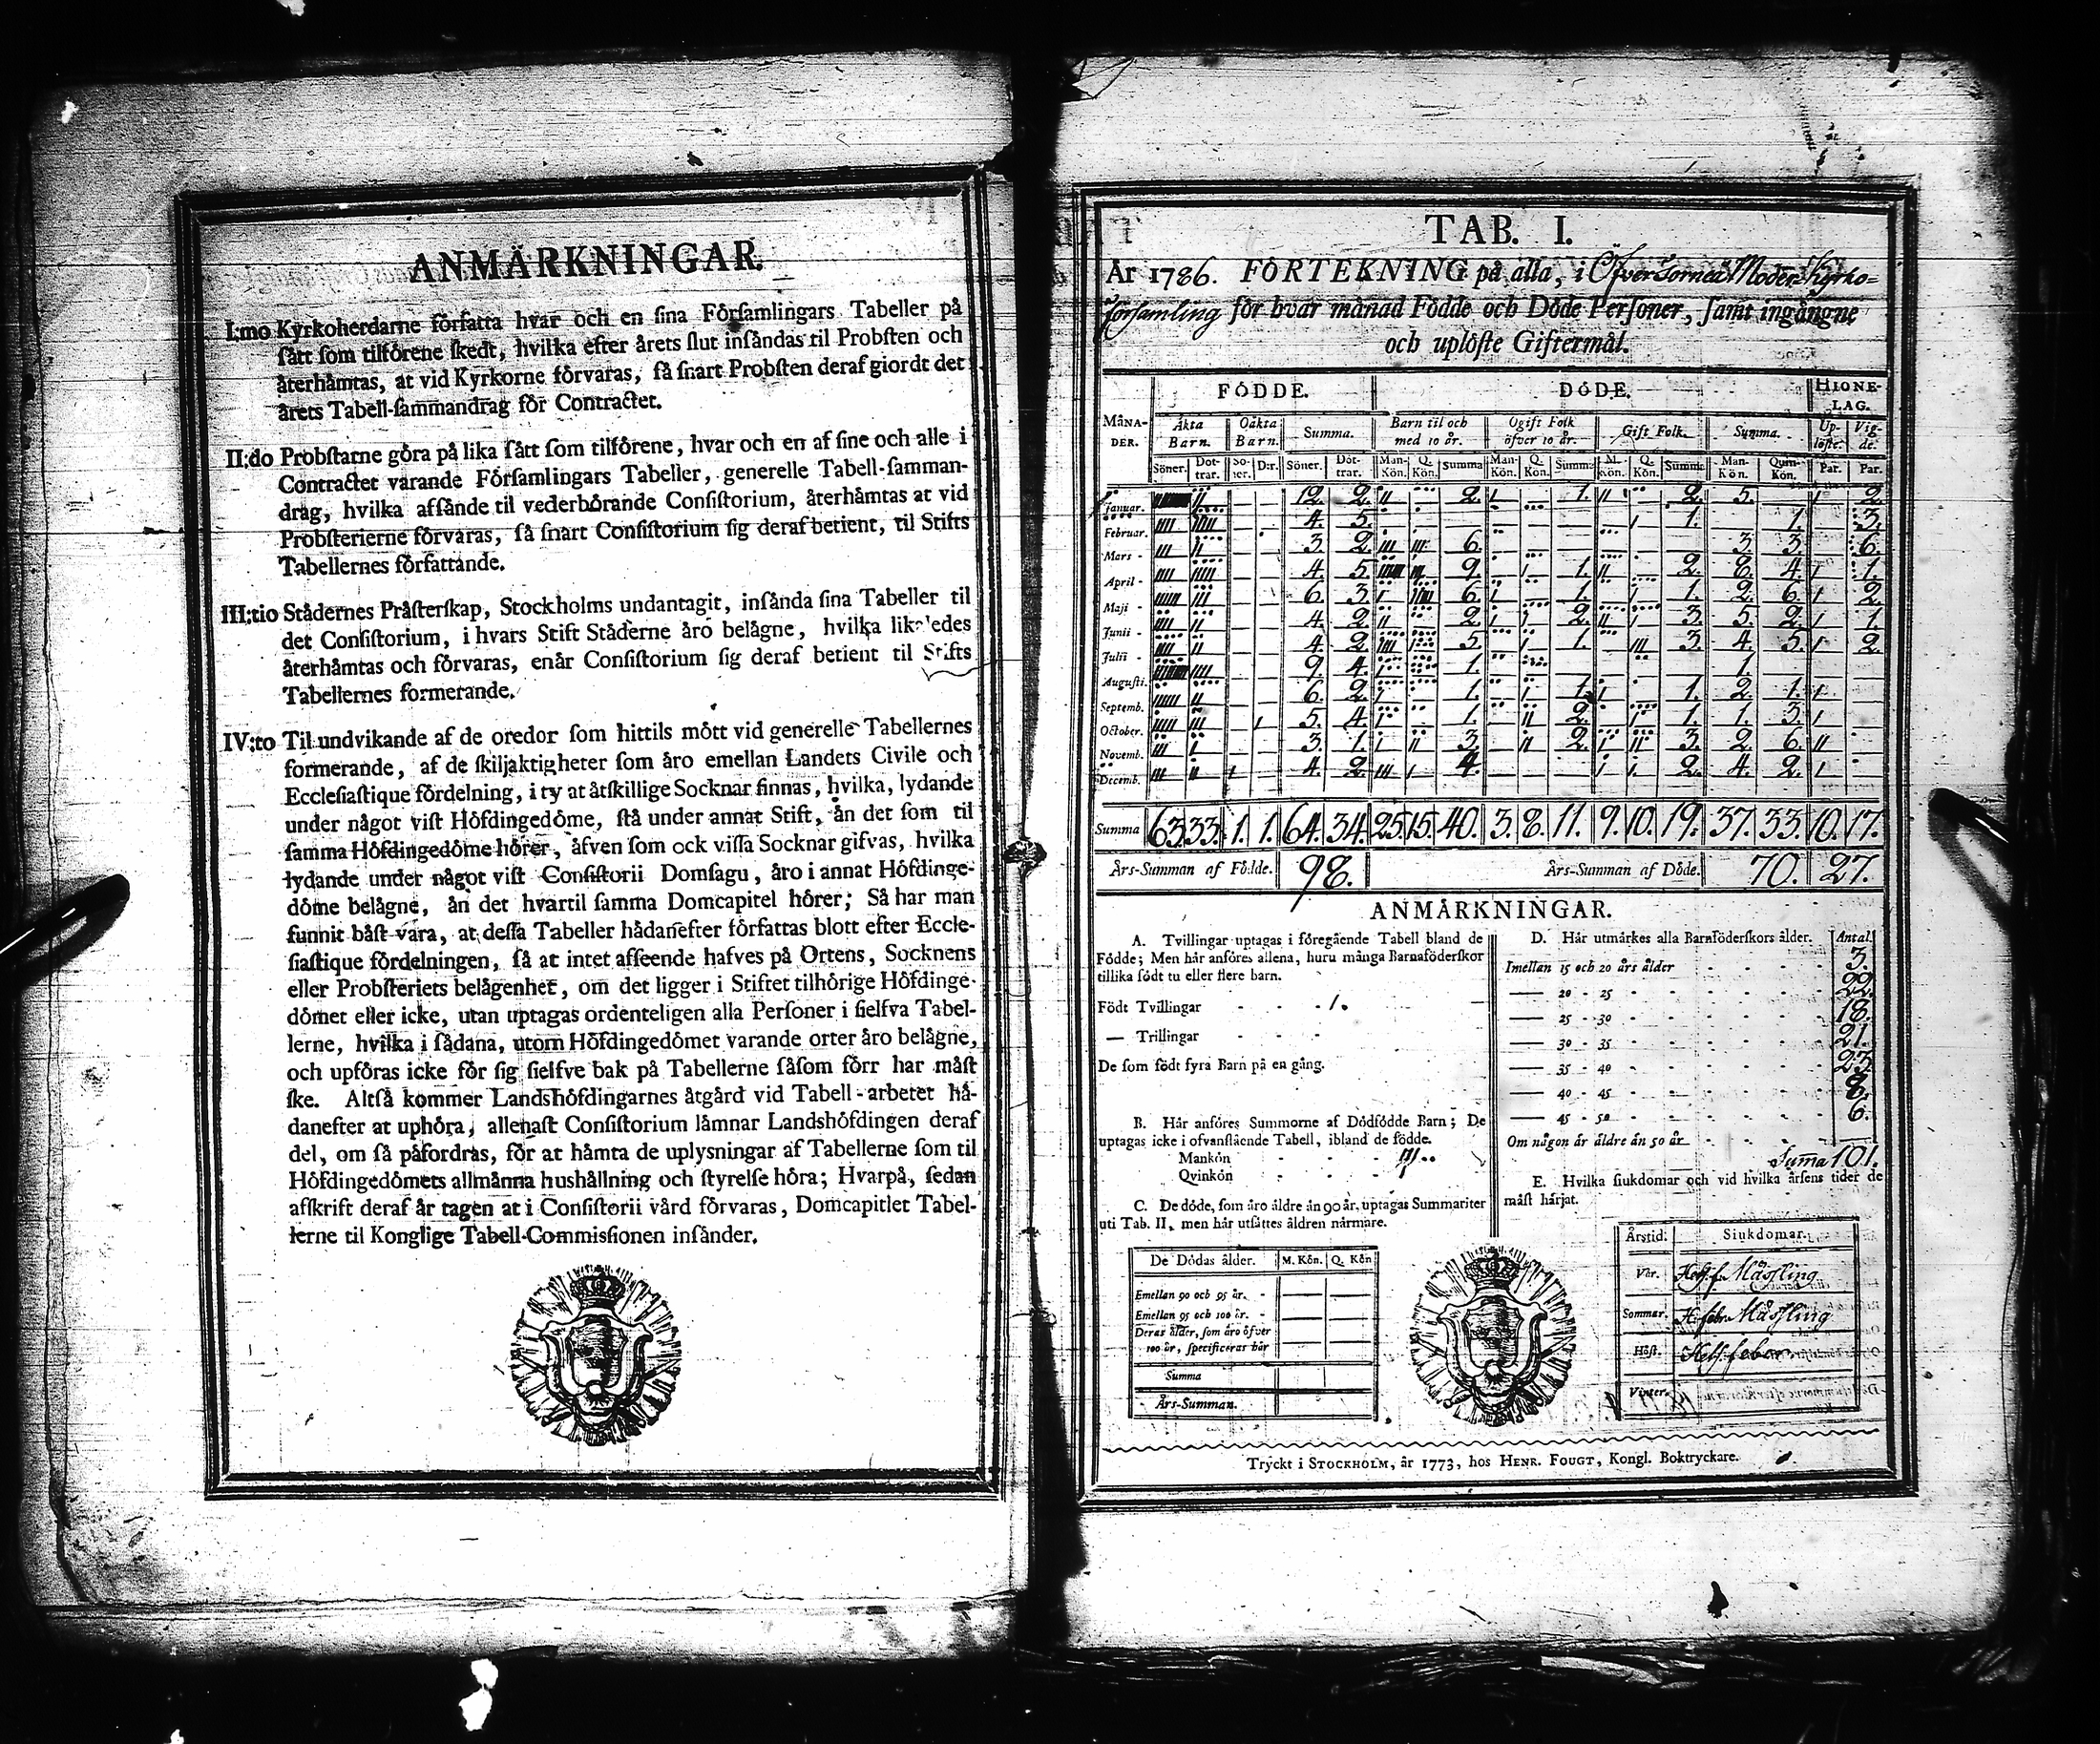 ANMÄRKNINGAR.
I:mo Kyrkoherdarne författa hvar och en sina Församlingars Tabeller på
sätt som tilförene skedt, hvilka efter årets slut insändas til Probsten och
återhämtas, at vid Kyrkorne förvaras, så snart Probsten deraf giordt det
årets Tabell-sammandrag för Contractet.
II:do Probstarne göra på lika sätt som tilförene, hvar och en af sine och alle i
Contractet varande Församlingars Tabeller, generelle Tabell-samman-
drag, hvilka afsände til vederbörande Consistorium, återhämtas at vid
Probsterierne förvaras, så snart Consistorium sig deraf betient, til Stifts
Tabellernes författande.
III:tio Städernes Prästerskap, Stockholms undantagit, insända sina Tabeller til
det Consistorium, i hvars Stift Städerne äro belägne, hvilka likaledes
återhämtas och förvaras, enär Consistorium sig deraf betient til Stifts
Tabellernes formerande.
IV:to Til undvikande af de oredor som hittils mött vid generelle Tabellernes
formerande, af de skiljaktigheter som äro emellan Landets Civile och
Ecclesiastique fördelning, i ty at åtskillige Socknar finnas, hvilka, lydande
under något vist Höfdingedöme, stå under annat Stift, än det som til
samma Höfdingedöme hörer, äfven som ock vissa Socknar gifvas, hvilka
lydande under något vist Consistorii Domsagu, äro i annat Höfdinge-
döme belägne, än det hvartil samma Domcapitel hörer; Så har man
funnit bäst vara, at dessa Tabeller hädanefter författas blott efter Eccle-
siastique fördelningen, så at intet afseende hafves på Ortens, Socknens
eller Probsteriets belägenhet, om det ligger i Stiftet tilhörige Höfdinge-
dömet eller icke, utan uptagas ordenteligen alla Personer i sielfva Tabel-
lerne, hvilka i sådana, utom Höfdingedömet varande orter äro belägne,
och upföras icke för sig sielfve bak på Tabellerne såsom förr har måst
ske. Altså kommer Landshöfdingarnes åtgärd vid Tabell-arbetet hä-
danefter at uphöra, allenast Consistorium lämnar Landshöfdingen deraf
del, om så påfordras, för at hämta de uplysningar af Tabellerne som til
Höfdingedömets allmänna hushållning och styrelse höra; Hvarpå, sedan
afskrift deraf är tagen at i Consistorii vård förvaras, Domcapitlet Tabel-
lerne til Konglige Tabell-Commissionen insänder.
TAB. I.
År 1786. FÖRTEKNING på alla, i Öfver Torneå Moder Kyrko-
församling för hvar månad Födde och Döde Personer, samt ingångne
och uplöste Giftermål.
FÖDDE. DÖDE. HIONE-
LAG.
MÅNA-
DER. Äkta
Barn. Oäkta
Barn. Summa. Barn til och
med 10 år. Ogift Folk
öfver 10 år. Gift Folk. Summa. Up-
löste. Vig-
de.
Söner. Döt-
trar. Sö-
ner. D:r. Söner. Döt-
trar. Man-
Kön. Q.
Kön. Summa Man-
Kön. Q.
Kön. Summa M.
Kön. Q.
Kön. Summa Man-
Kön. Quin-
Kön. Par. Par.
Januar. 12. 2. 2. 1. 2. 5. 2.
Februar. 4. 5. 1. 1. 3.
Mars - 3. 2. 6. 3. 3. 6.
April - 4. 5. 9. 1. 2. 8. 4. 1.
Maji - 6. 3. 6. 1. 1. 2. 6. 2.
Junii - 4. 2. 2. 2. 3. 5. 2. 1.
Julii - 4. 2. 5. 1. 3. 4. 5. 2.
Augusti. 9. 4. 1. 1.
Septemb. 6. 2. 1. 1. 1. 2. 1.
October. 5. 4. 1. 2. 1. 1. 3.
Novemb. 3. 1. 3. 2. 3. 2. 6.
Decemb. 4. 2. 4. 2. 4. 2.
Summa 63. 33. 1. 1. 64. 34. 25. 15. 40. 3. 8. 11. 9. 10. 19. 37. 33. 10. 17.
Års-Summan af Födde. 98. Års-Summan af Döde. 70. 27.
ANMÄRKNINGAR.
A. Tvillingar uptagas i föregående Tabell bland de
Födde; Men här anföres allena, huru många Barnaföderskor
tillika födt tu eller flere barn.
Födt Tvillingar - - - 1.
— Trillingar - - -
De som födt fyra Barn på en gång.
B. Här anföres Summorne af Dödfödde Barn; De
uptagas icke i ofvanstående Tabell, ibland de födde.
Mankön - - -
Qvinkön - - -
C. De döde, som äro äldre än 90 år, uptagas Summariter
uti Tab. II, men här utsättes åldren närmare.
De Dödas ålder. M. Kön. Q. Kön
Emellan 90 och 95 år. -
Emellan 95 och 100 år. -
Deras ålder, som äro öfver
100 år, specificeras här
Summa
Års-Summan.
D. Här utmärkes alla Barnföderskors ålder. Antal.
Imellan 15 och 20 års ålder 3.
— 20 - 25 22.
— 25 - 30 18.
— 30 - 35 21.
— 35 - 40 23.
— 40 - 45 8.
— 45 - 50 6.
Om någon är äldre än 50 år
Suma 101.
E. Hvilka siukdomar och vid hvilka årsens tider de
mäst härjat.
Årstid. Siukdomar.
Vår. Mässling
Sommar. Mässling
Höst.
Vinter.
Tryckt i STOCKHOLM, år 1773, hos HENR. FOUGT, Kongl. Boktryckare.